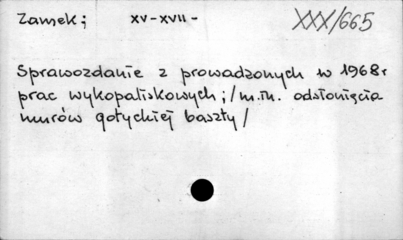 Zamek; XV-XVII- XXX/665
Sprawozdanie z prowadzonych w 1968r
prac wykopaliskowych;/m.in. odsłonięcia
murów gotyckiej baszty/